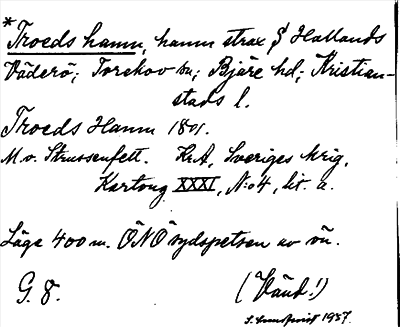 *Troeds hamn, hamn strax § Hallands
Väderö; Torekov sn; Bjäre hd; Kristian-
stads l.
Troeds Hamn 1801.
M. v. Strussenfelt. KrA, Sveriges krig,
Kartong XXXI, N:o 4, lit. a.
Läge 400 m. ÖNÖ sydspetsen av ön.
G. 8.
(Vänd!)
1937.